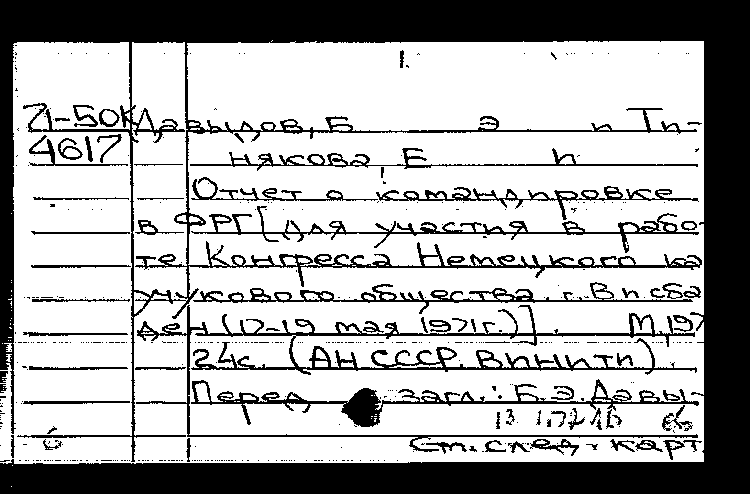 1.
Д-50К Давыдов, Б Э и Ти-
4617 някова, Е П
Отчет о командировке
в ФРГ [для участия в рабо-
те Конгресса Немецкого ка
учукового общества. г. Висба
ден (17-19 мая 1971г.)]. М, 197
24с. (АН СССР. ВИНИТИ).
Перед загл.: Б.Э. Давы-
13 1.72
б См. след. карт.